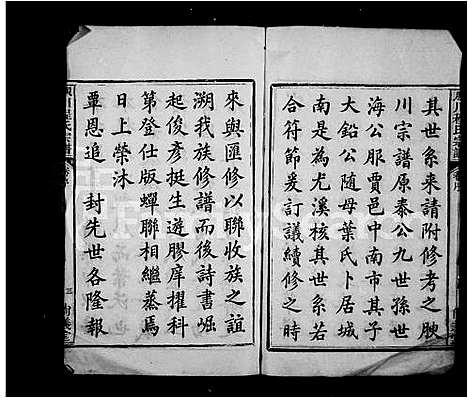 其世系來請附修考之腴
川宗譜原泰公九世孫世
海公服賈邑中南市其子
大鉛公隨母葉氏卜居城
南是為尤溪核其世系若
合符節爰訂議續修之時
來與匯修以聯收族之誼
溯我族修譜而後詩書崛
起俊彥挺生遊膠庠擢科
第登仕版蟬聯相繼蒸焉
日上榮沐
覃恩追 封先世各隆報